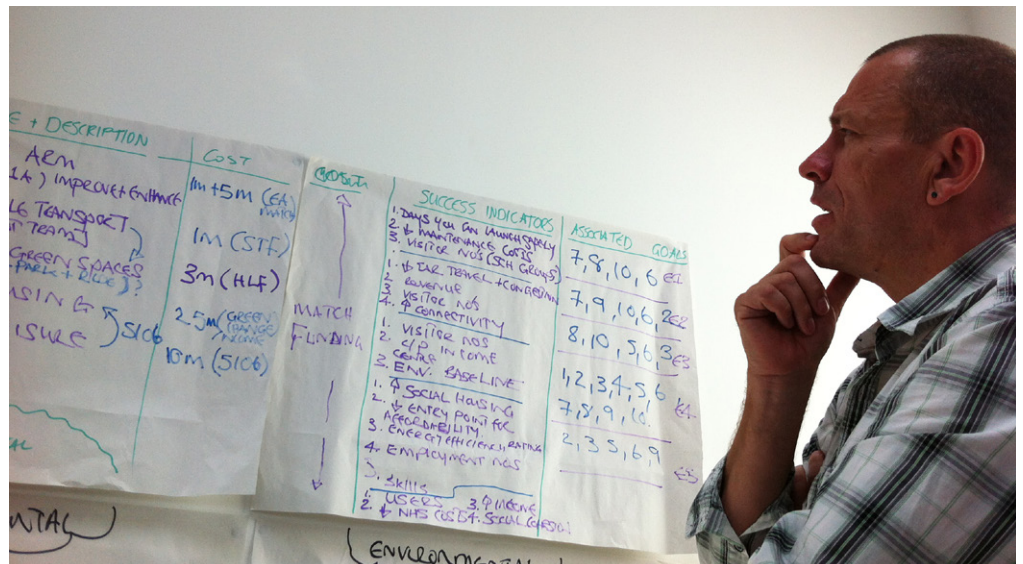 E + DESCRIPTION
ARM
1A) IMPROVE + ENHANCE
TRANSPORT
TEAM]
GREEN SPACES
PARK + RIDE]?
SING
ISURE
S106
COST
1m + 5m (EA
1m (STF)
3m (HLF)
2.5m (GREEN
INCOME
10m (S106)
MATCH
FUNDING
SUCCESS INDICATORS
1. DAYS YOU CAN LAUNCH SAFELY
2. ↓ MAINTENANCE COSTS
3. VISITOR NOS (SCH GROUPS)
1. ↓ CAR TRAVEL + CONGESTION
2. REVENUE
3. VISITOR NOS
4. ↑ CONNECTIVITY
1. VISITOR NOS
2. C/P INCOME
CENTRE
3. ENV. BASELINE
1. ↑ SOCIAL HOUSING
2. ↓ ENTRY POINT FOR
AFFORDABILITY.
3. ENERGY EFFICIENCY RATING
4. EMPLOYMENT NOS
5. SKILLS
1. USERS 3. ↑ INCOME
2. ↓ NHS COSTS 4. SOCIAL COHESION
ASSOCIATED GOALS
7, 8, 10, 6 EC1
7, 9, 10, 6, 2 EC2
8, 10, 5, 6, 3 EC3
1, 2, 3, 4, 5, 6
7, 8, 9, 10.
2, 3 5, 6, 9
NTAL
ENVIRONMENTAL